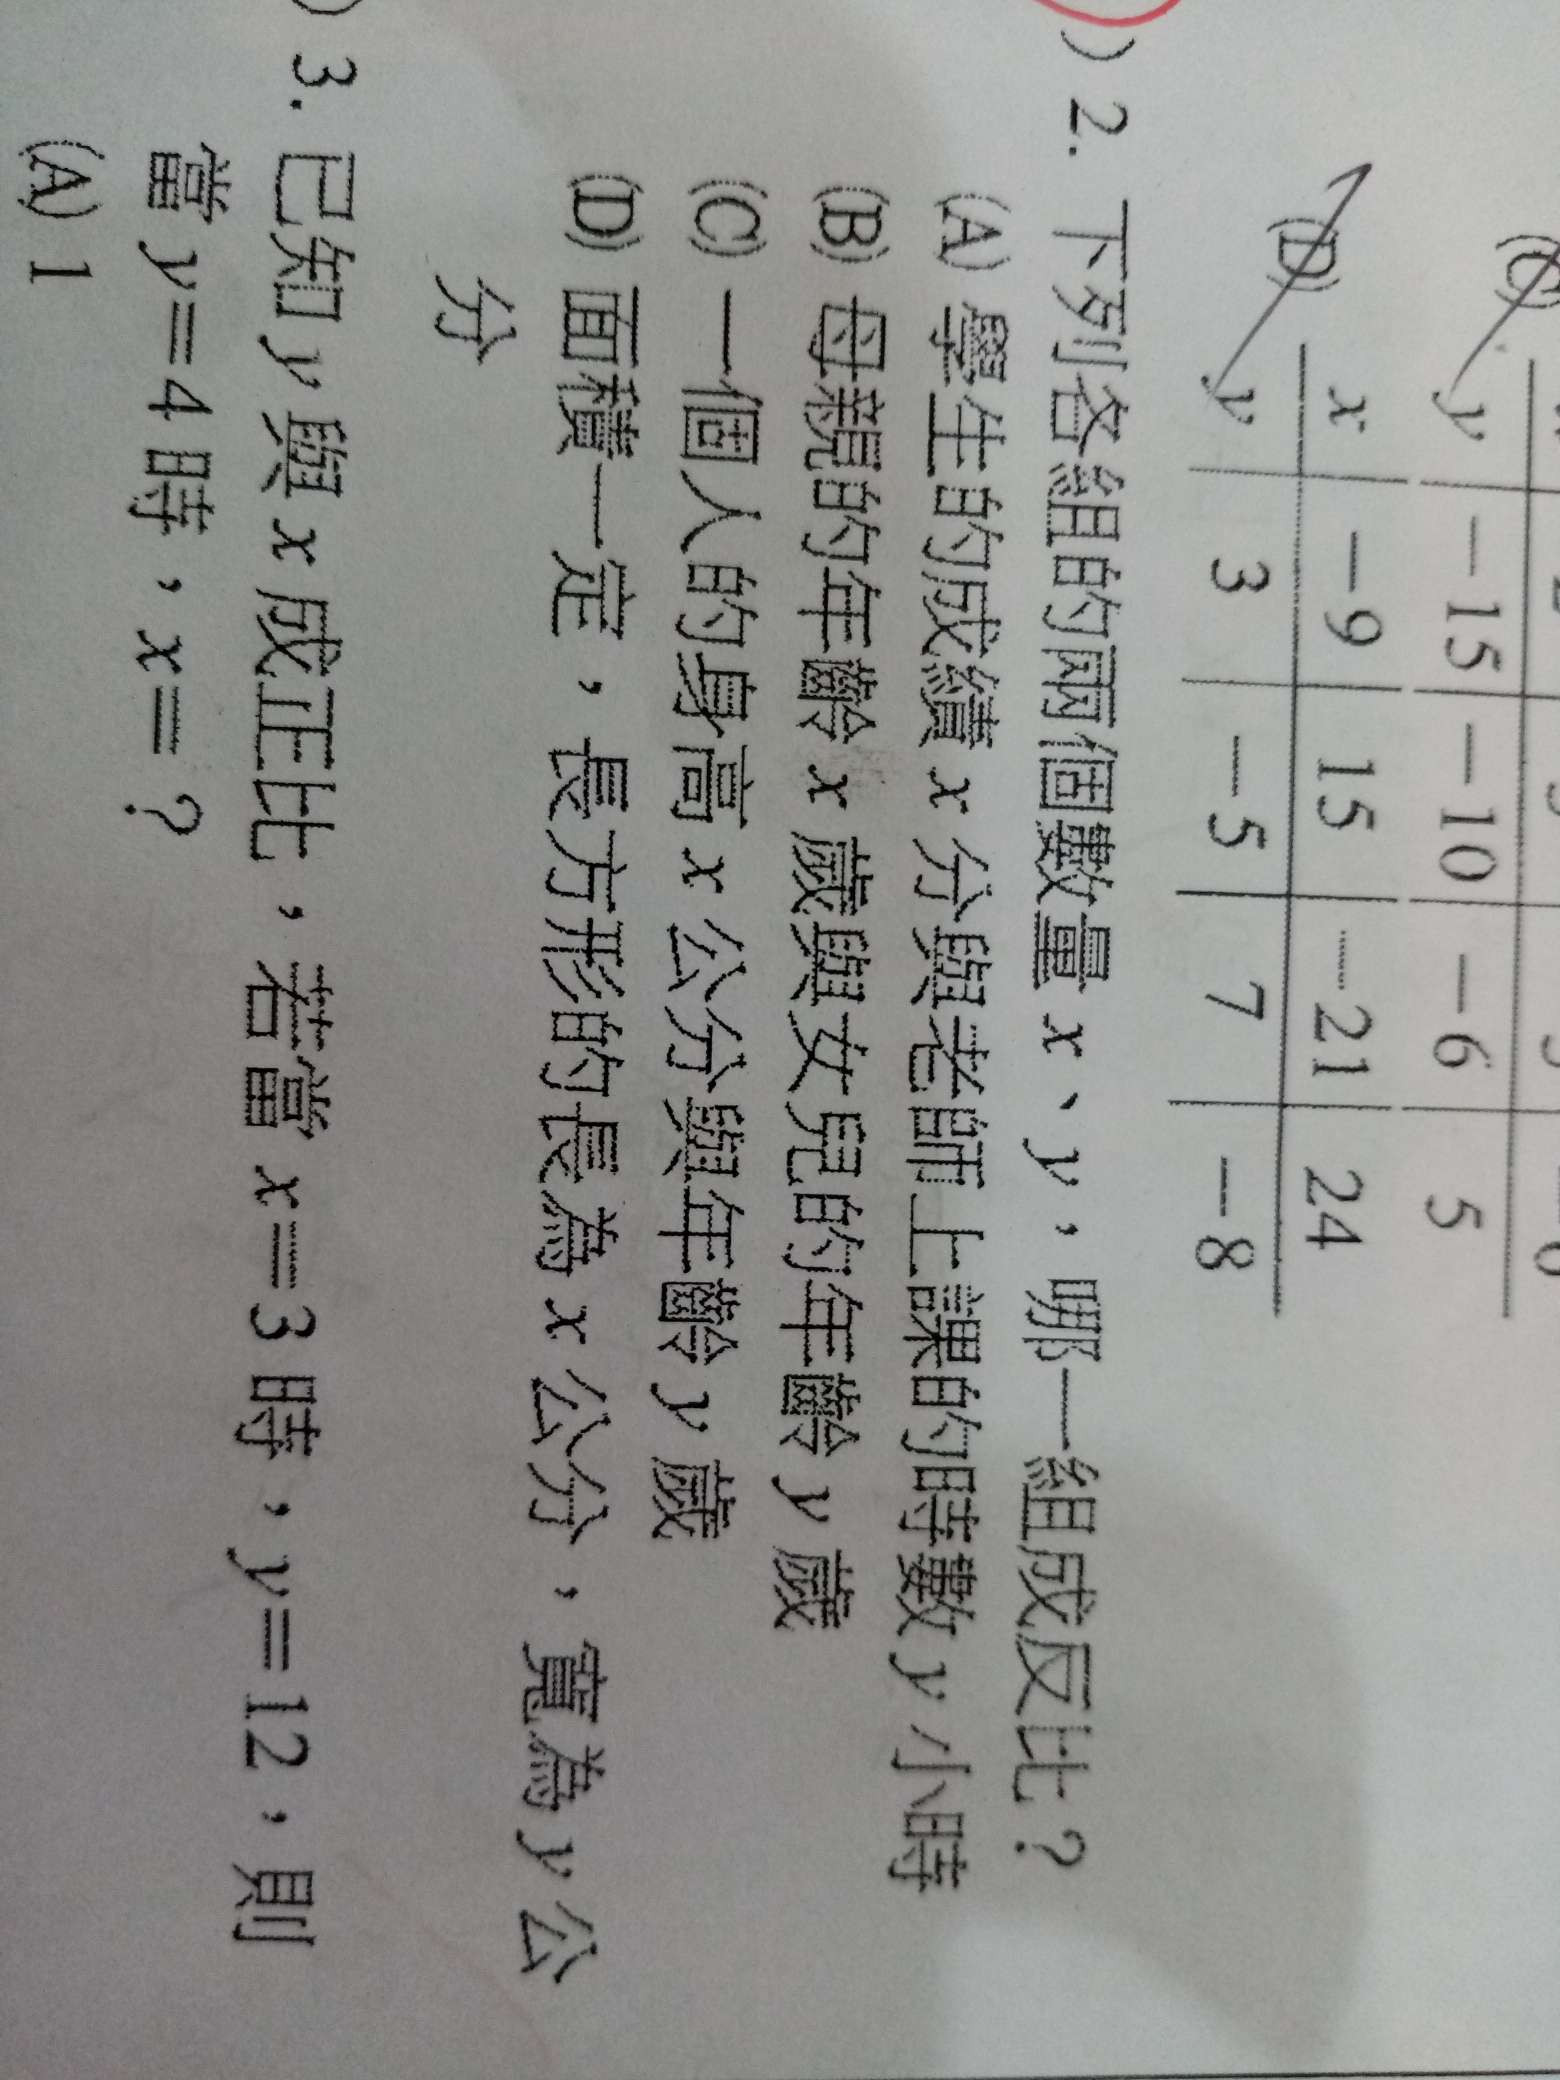 (C)
y −15 −10 −6 5
(D) x −9 15 −21 24
y 3 −5 7 −8
) 2. 下列各組的兩個數量 x、y，哪一組成反比？
(A) 學生的成績 x 分與老師上課的時數 y 小時
(B) 母親的年齡 x 歲與女兒的年齡 y 歲
(C) 一個人的身高 x 公分與年齡 y 歲
(D) 面積一定，長方形的長為 x 公分，寬為 y 公
分
) 3. 已知 y 與 x 成正比，若當 x＝3 時，y＝12，則
當 y＝4 時，x＝？
(A) 1